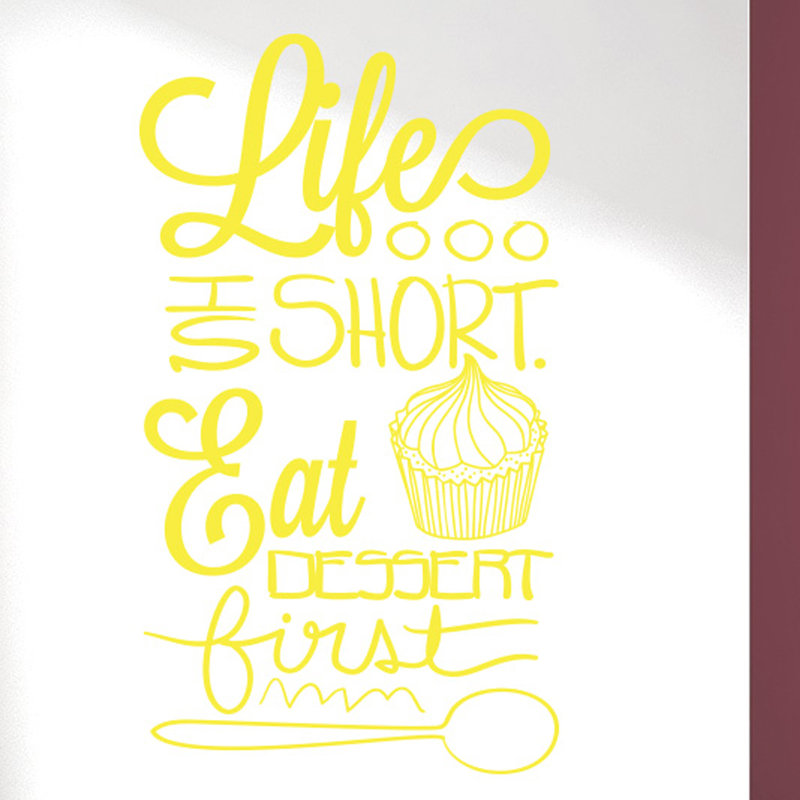 Life
IS SHORT.
Eat
DESSERT
first